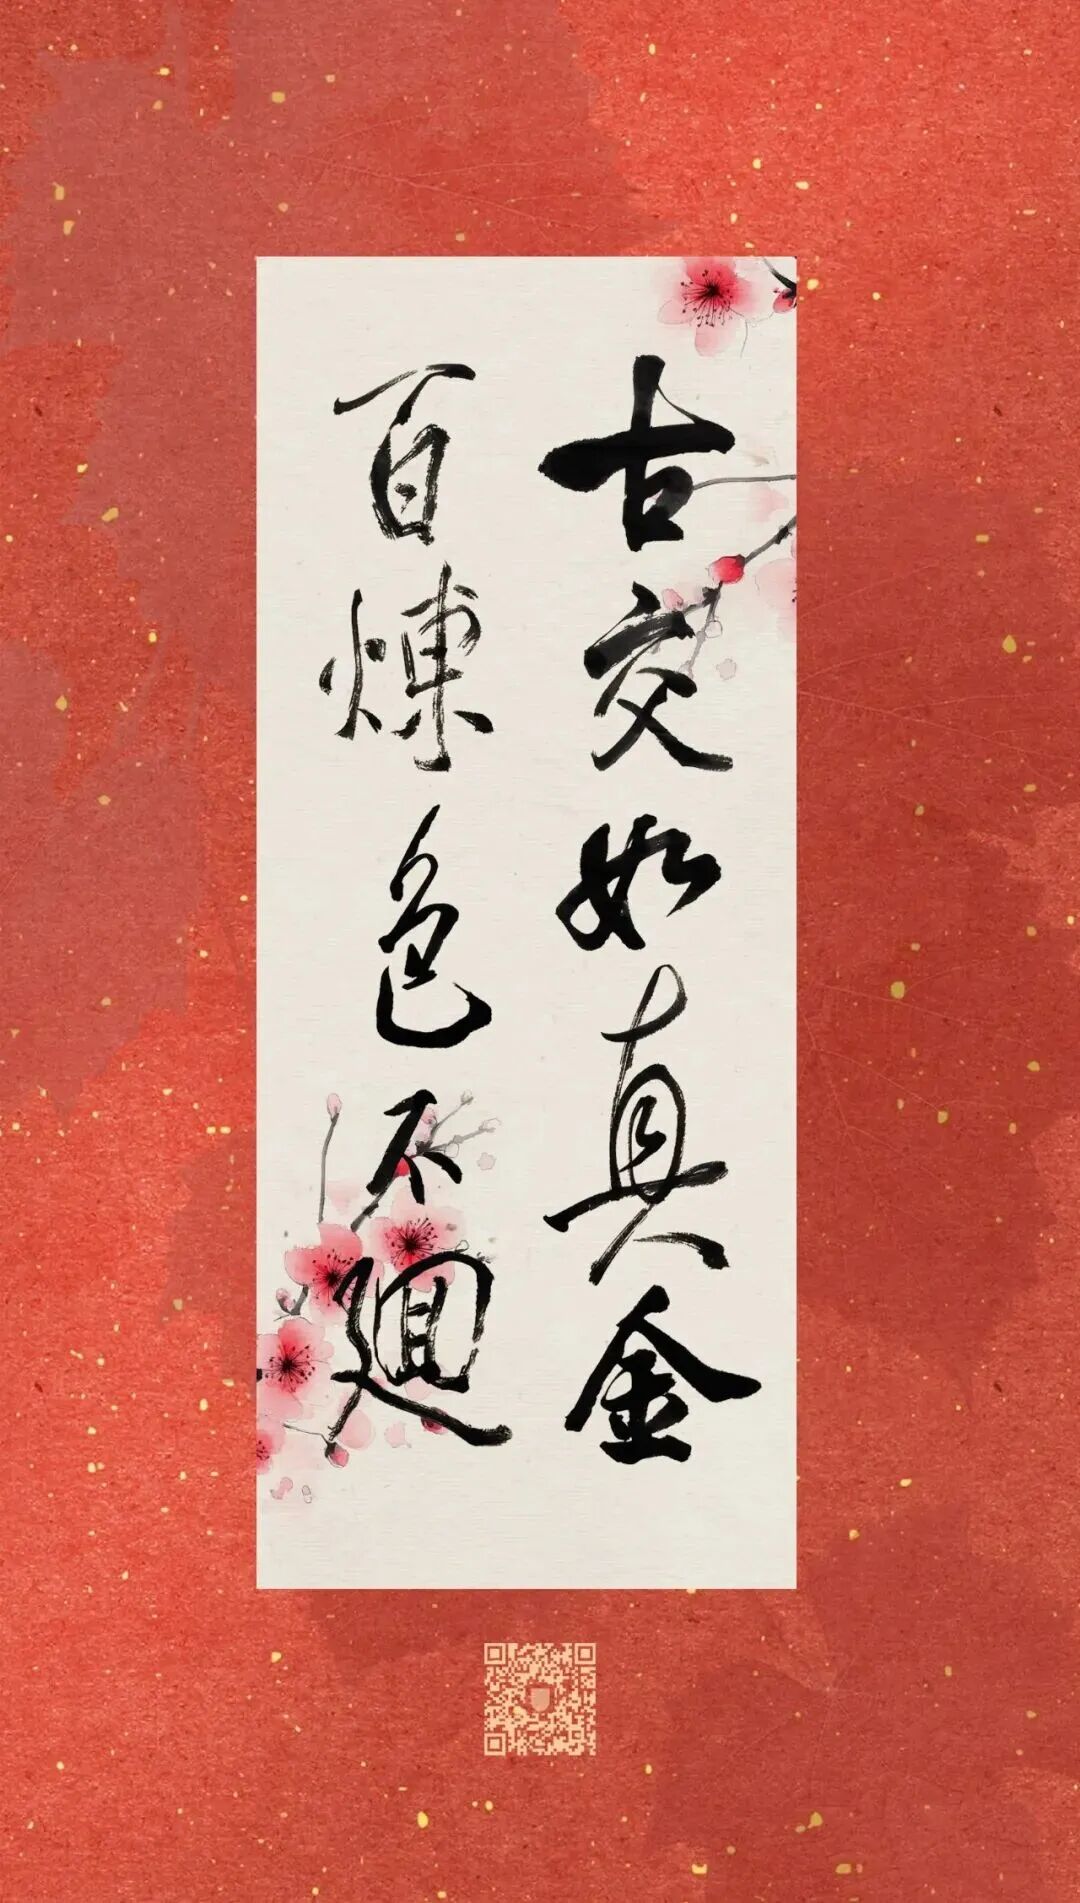 古交如真金
百煉色不迴